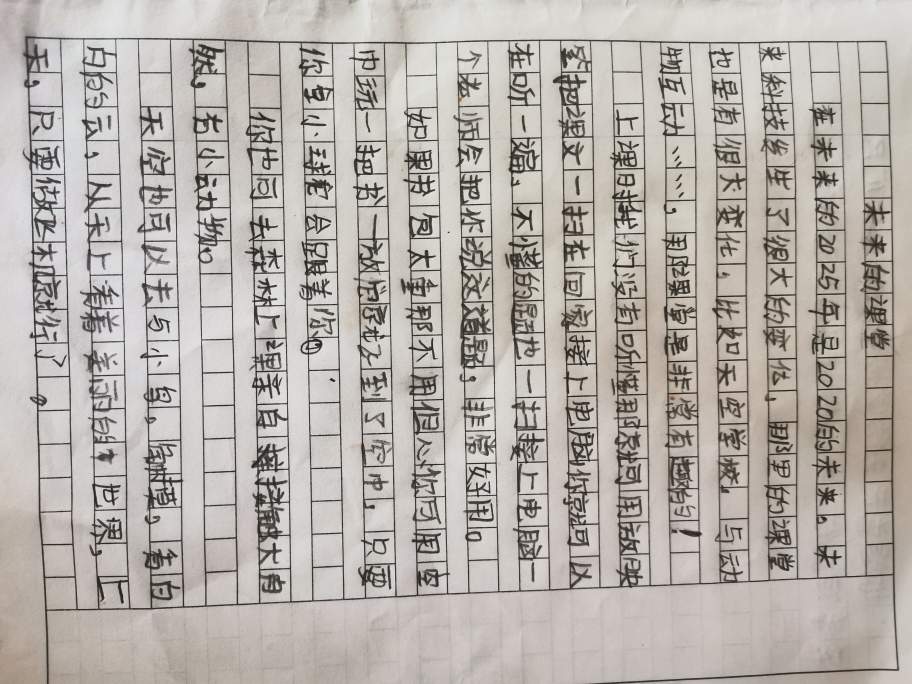 未来的课堂
在未来的2025年是2020的未来。未
来科技发生了很大的变化，那里的课堂
也是有很大变化，比如天空学校，与动
物互动……，那课堂是非常有趣的！
上课时我们没有听懂那就可用放映
笔把课文一扫在回家接上电脑你就可以
在听一遍，不懂的题也一扫接上电脑一
个老师会把你说这道题，非常好用。
如果书包太重那不用但心你可用空
巾统一把书一放信序就到了空中，只要
你拿小球它会跟着你。
你也可去森林上课亲自接触大自
然，右小动物。
天空也可以去与小鸟。触摸，看白
白的云，从天上看着美丽的世界，上
天，只要做飞机就行了。